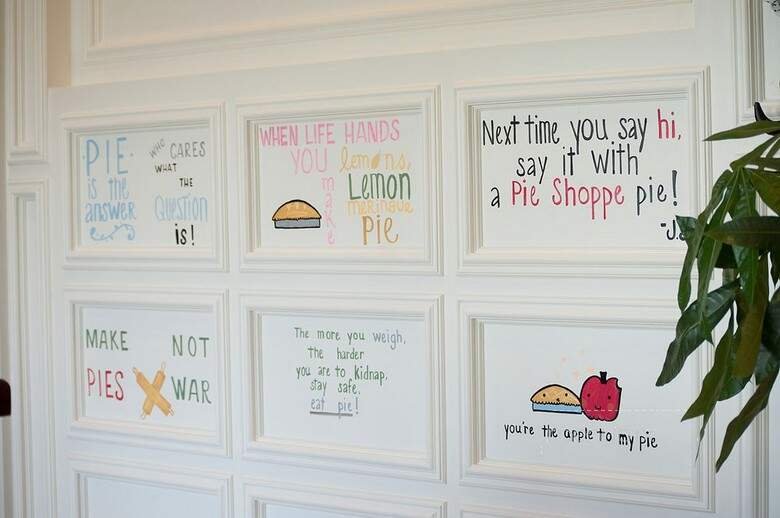 PIE
is the
answer
WHO CARES
WHAT
THE
Question
is!
WHEN LIFE HANDS
YOU lemons,
make
Lemon
meringue
Pie
Next time you say hi,
say it with
a Pie Shoppe pie!
MAKE
PIES
NOT
WAR
The more you weigh,
the harder
you are to kidnap.
stay safe.
eat pie!
you're the apple to my pie